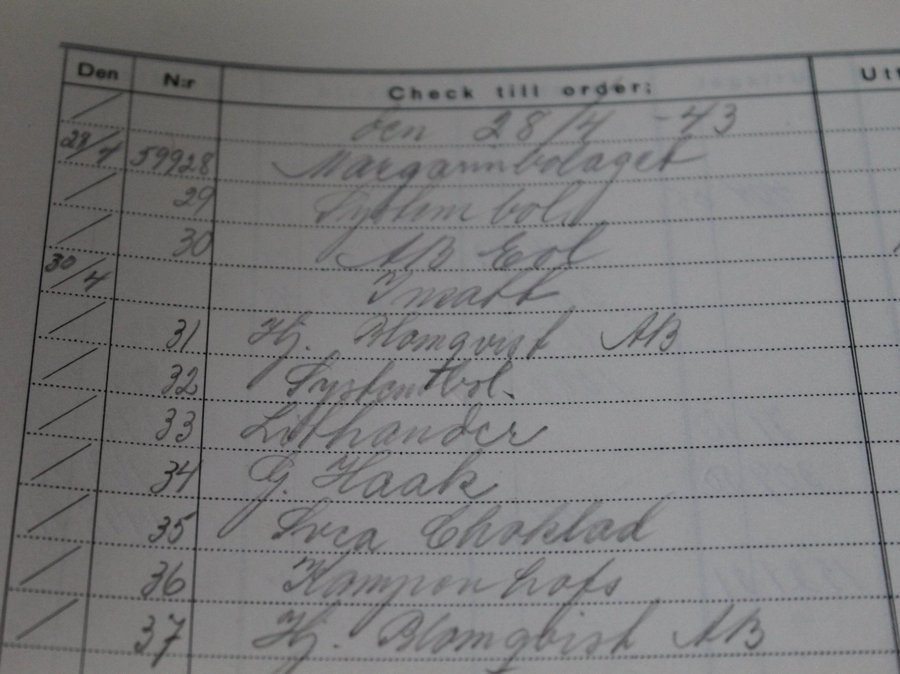 Den N:r Check till order: Utt
/ den 28/4 -43
28/4 59928 Margarinbolaget
/ 29 Systembol.
/ 30 AB Eol
30/4 Insatt
/ 31 Hj. Blomqvist AB
/ 32 Systembol.
/ 33 Lithander
/ 34 G. Haak
/ 35 Svea Choklad
/ 36 Kampenhofs
/ 37 Hj. Blomqvist AB